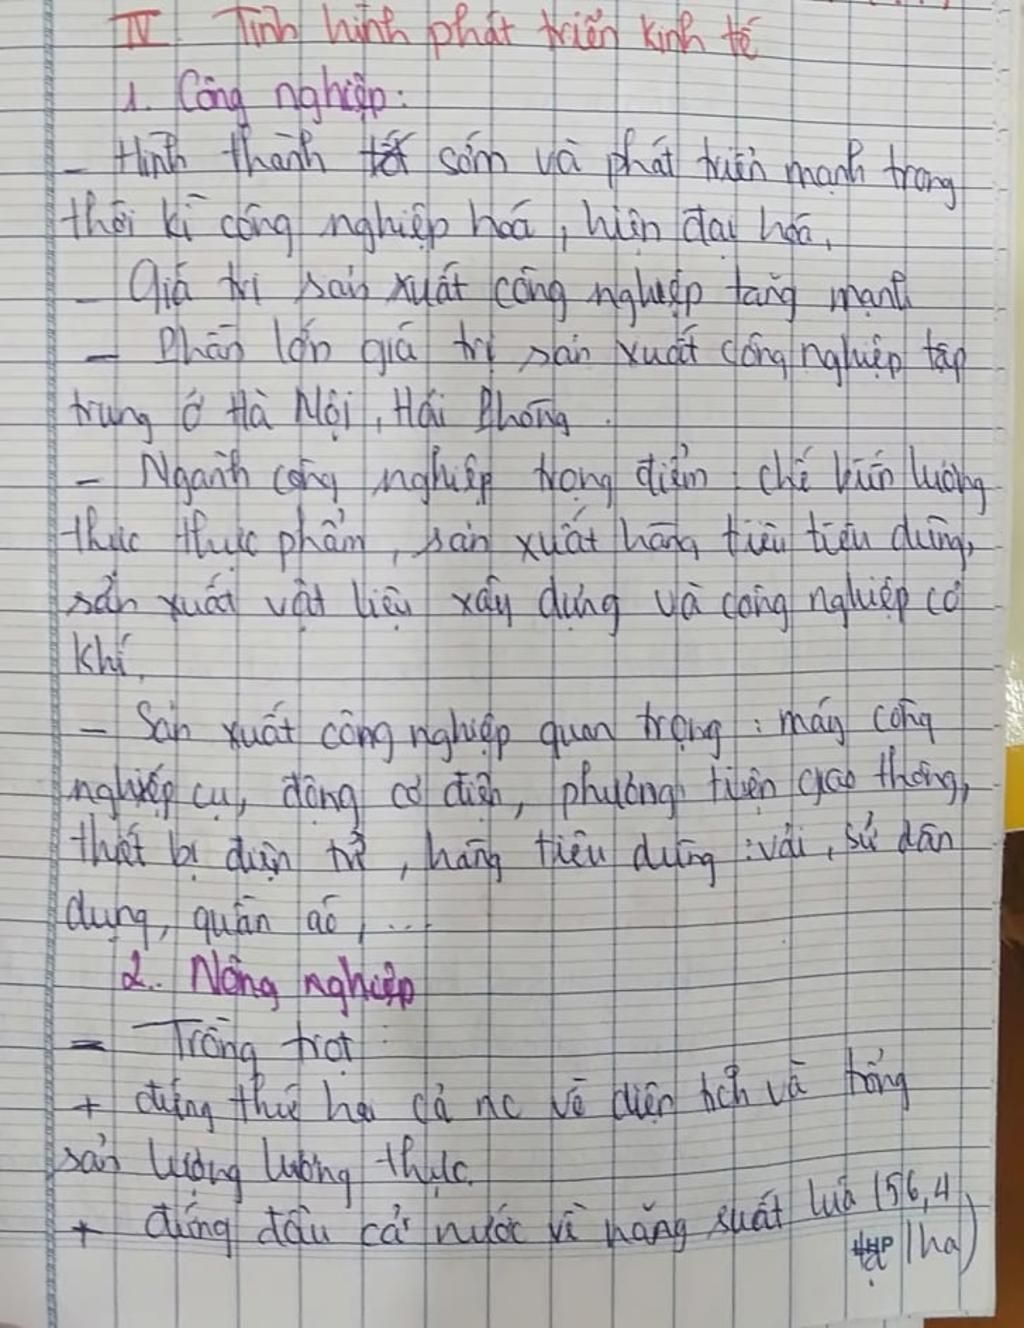 IV. Tình hình phát triển kinh tế
1. Công nghiệp:
- Hình thành sớm và phát triển mạnh trong
thời kì công nghiệp hoá, hiện đại hoá.
- Giá trị sản xuất công nghiệp tăng mạnh
- Phần lớn giá trị sản xuất công nghiệp tập
trung ở Hà Nội, Hải Phòng.
- Ngành công nghiệp trọng điểm: chế biến lương
thực thực phẩm, sản xuất hàng tiêu tiêu dùng,
sản xuất vật liệu xây dựng và công nghiệp cơ
khí.
- Sản xuất công nghiệp quan trọng: máy công
nghiệp cụ, động cơ điện, phương tiện giao thông,
thiết bị điện tử, hàng tiêu dùng: vải, sứ dân
dụng, quần áo,...
2. Nông nghiệp
- Trồng trọt:
+ đứng thứ hai cả nc về diện tích và tổng
sản lượng lương thực.
+ đứng đầu cả nước về năng suất lúa (56,4
tạ/ha)